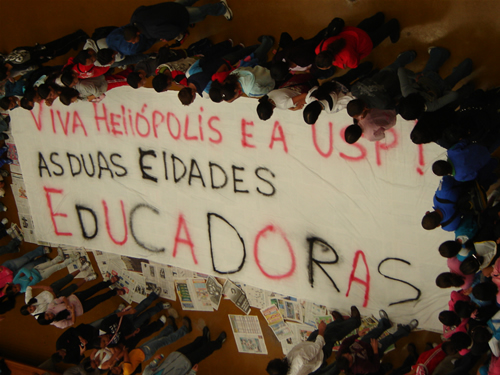 VIVA HELIÓPOLIS E A USP!
AS DUAS EIDADES
EDUCADORAS